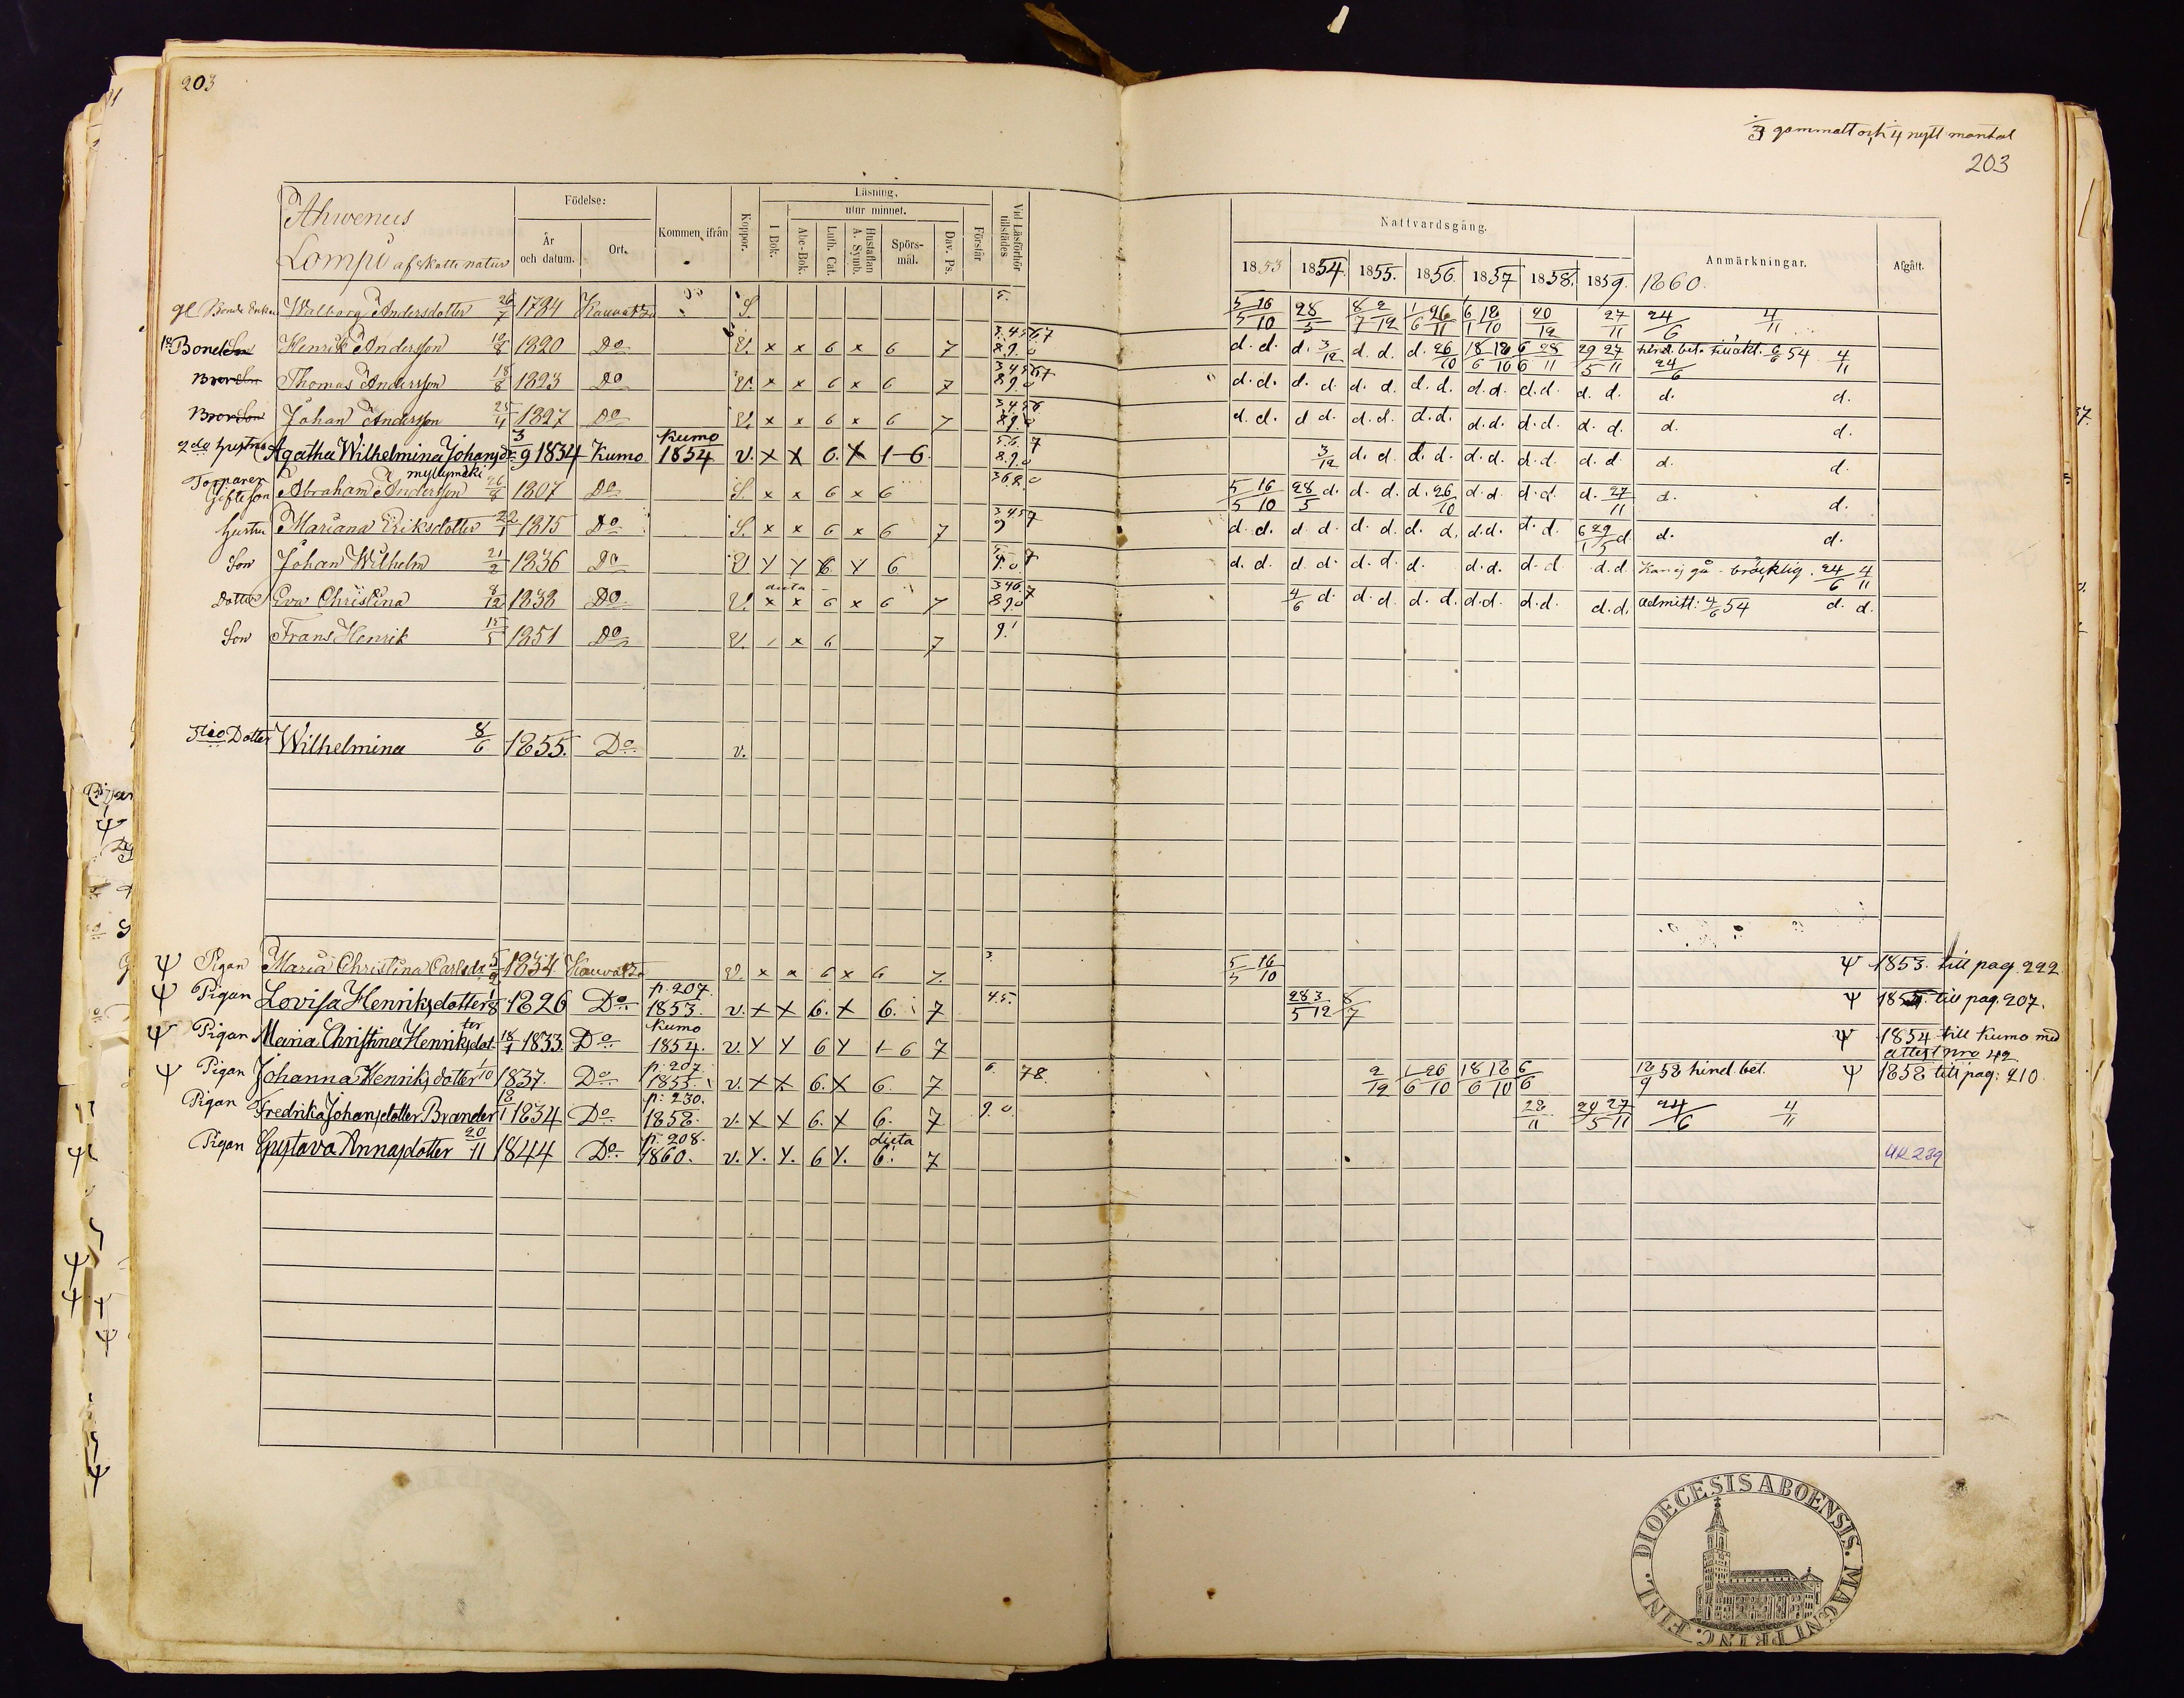 203
3 gammalt och 1/4 nytt mantal
203
Ahwenus
Lompi af Skatte natur
Födelse:
År och datum.
Ort.
Kommen ifrån
Koppor.
Läsning.
utur minnet.
I Bok.
Abc-Bok.
Luth. Cat.
Hustaflan A. Symb.
Spörsmål.
Dav. Ps.
Förstår
Vid Läsförhör tillstädes
Nattvardsgång.
1853 1854. 1855. 1856. 1857 1858. 1859. 1860.
Anmärkningar.
Afgått.
gl Bonde Enkan Walborg Andersdotter 26/7 1784 Kauvatza S. 5. 5/5 16/10 28/5 8/7 2/12 1/6 26/11 6/1 18/10 20/12 27/11 24/6 4/11
Bonden Henrik Andersson 1820 Do V. x x 6 x 6 7 3.4.5.6.7 8.9.0 d. d. d. 3/12 d. d. d. 26/10 18/6 18/10 6/6 28/11 29/5 27/11 hind. bet. 6/6 54 24/6 4/11
Thomas Andersson 18/8 1823 Do V. x x 6 x 6 7 3 4 5 6 7 8.9.0 d. d. d. d. d. d. d. d. d. d. d. d. d. d. d. d.
Johan Andersson 25/4 1827 Do V. x x 6 x 6 7 3 4 5 6 8 9 0 d. d. d. d. d. d. d. d. d. d. d. d. d. d. d. d.
2do hustru Agatha Wilhelmina Johansdr 3/9 1834 Kumo Kumo 1854 v. x x 6. x 1-6. 5.6. 7 8.9.0 3/12 d. d. d. d. d. d. d. d. d. d. d. d.
Torparen Gifte Son Abraham Andersson myllymäki 26/8 1807 Do S. x x 6 x 6 3 6 8.0 5/5 16/10 28/5 d. d. d. d. 26/10 d. d. d. d. d. 27/11 d. d.
hustru Mariana Eriksdotter 22/1 1815 Do S. x x 6 x 6 7 3 4 5 7 9 d. d. d. d. d. d. d. d. d. d. d. d. 6/1 29/5 d d. d.
Son Johan Wilhelm 21/2 1836 Do V x x 6 x 6 5 7 9.0. d. d. d. d. d. d. d. d. d. d. d. d. d. Kan ej gå - bräcklig. 24/6 4/11
Dotter Eva Christina 8/12 1838 Do V. dicta x x 6 x 6 7 3 4 6. 7 8 9.0 4/6 d. d. d. d. d. d. d. d. d. d. d. admitt: 4/6 54 d. d.
Son Frans Henrik 15/5 1851 Do V. x 6 7 9.
Dotter Wilhelmina 8/6 1855. Do v.
Ψ Pigan Maria Christina Carlsdr 5/9 1834 Kauvatza V. x x 6 x 6 7. 3. 5/5 16/10 Ψ 1853. till pag. 222
Ψ Pigan Lovisa Henriksdotter 1826 Do p. 207. 1853. v. x x 6. x 6. 7 4.5. 28/5 3/12 8/7 Ψ 1855. till pag. 207.
Ψ Pigan Maria Christina Henriksdotter 18/1 1833. Do Kumo 1854. v. x x 6 x 1-6 7 Ψ 1854 till Kumo med attest nro 42
Ψ Pigan Johanna Henriksdotter 1/10 1837. Do p. 207. 1855. v. x x 6. x 6. 7 6. 78. 2/12 1/6 26/10 18/6 18/10 6/6 18/9 58 hind. bet. Ψ 1858 till pag: 210
Pigan Fredrika Johansdotter Brander 18/1 1834 Do p: 230. 1858. v. x x 6. x 6. 7 9 0 28/11 29/5 27/11 24/6 4/11
Pigan Gustava Annasdotter 20/11 1844 Do p: 208. 1860. v. x. x. 6 x. dicta 6. 7 UK 239
DIOECESIS ABOENSIS. MAGNI PRINC. FINL.